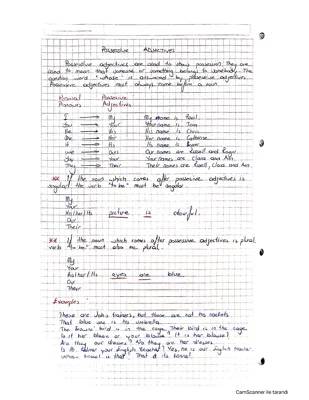 POSSESSIVE ADJECTIVES
Possessive adjectives are used to show possession. They are
used to mean that someone or something belongs to somebody. The
question word "whose" is answered by possessive adjectives.
Possessive adjectives must always come before a noun.
Personal Possessive
Pronouns Adjectives
I → My My name is Paul.
You → Your Your name is Tom.
He → His His name is Chris.
She → Her Her name is
It → Its Its name is
We → Our Our names are and
You → Your Your names are Clara and
They → Their Their names are and
** If the noun which comes after possessive adjectives is
singular the verb "to be" must be singular.
My
Your
His/her/Its picture is colourful.
Our
Their
** If the noun which comes after possessive adjectives is plural
verb "to be" must also be plural.
My
Your
His/her/Its eyes are blue.
Our
Their
Examples
These are John's trainers, but those are not his rackets.
That blue one is his umbrella.
The bird is in the cage. Their bird is in the cage.
Is it her blouse or your blouse? It is her blouse.
Are they our dresses? No they are her dresses.
Is your English teacher? Yes, he is our English teacher.
Whose kennel is that? That is its kennel.
CamScanner ile tarandı